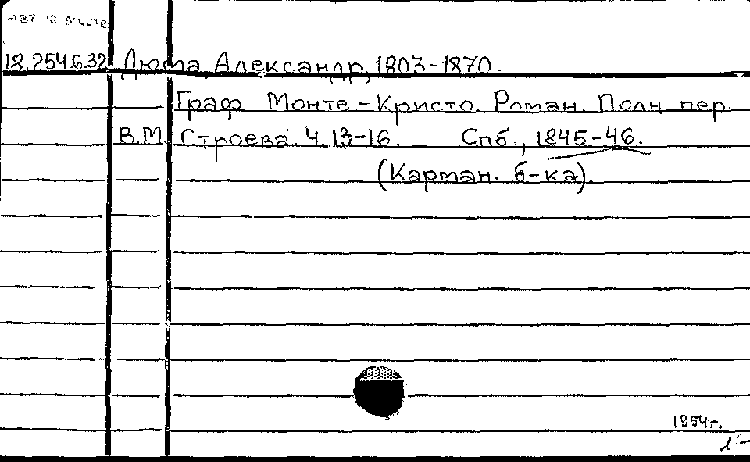 18.254.6.32 Дюма Александр, 1803-1870.
Граф Монте-Кристо. Роман. Полн. пер.
В.М. Строева. Ч. 13-16. Спб., 1845-46.
(Карман. б-ка).
1954г.